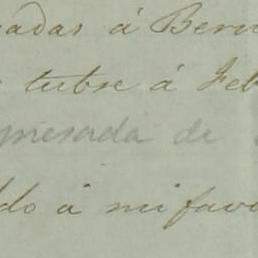 cadas á Bern
tubre á Feb
mesada de
do á mi favo